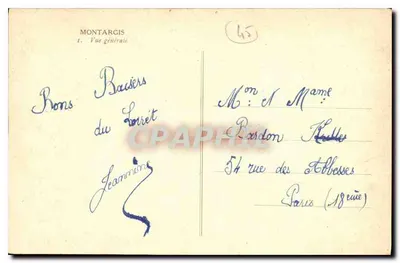 MONTARGIS
1. Vue générale
45
Bons Baisers
du Loiret
Jeannine
Mon. et Mame.
Pardon
54 rue des Abbesses
Paris (18 eme)
CPARAMA.COM